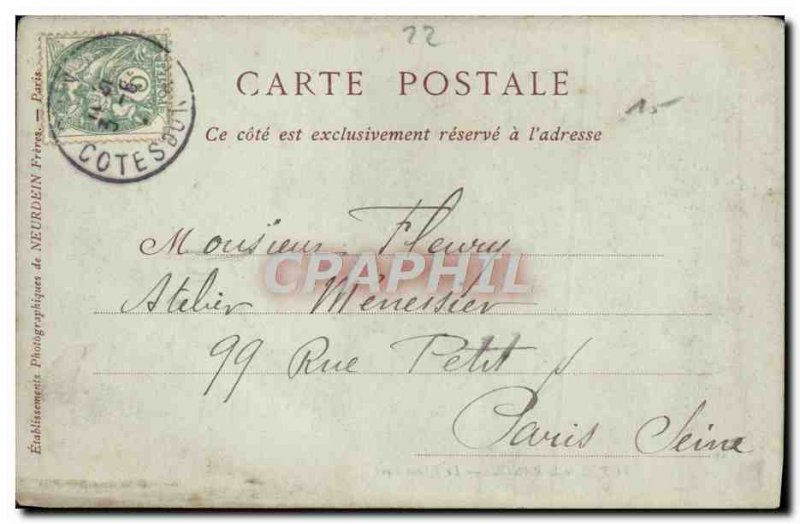 22
CARTE POSTALE
15
Ce côté est exclusivement réservé à l'adresse
COTES DU
5
POSTES
Monsieur Fleury
CPAPHIL
Atelier Menessier
99 Rue Petit
Paris Seine
Établissements Photographiques de NEURDEIN Frères. — Paris.